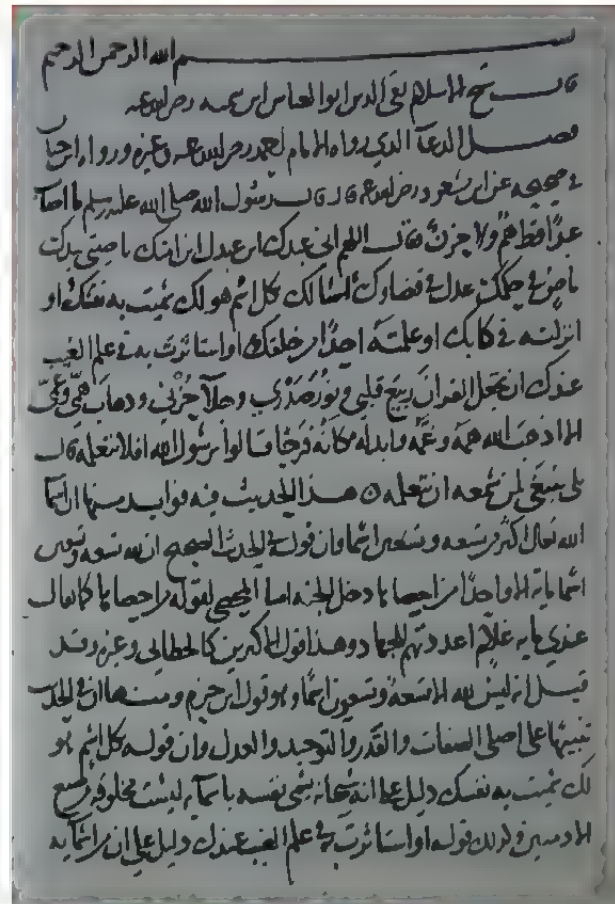 بسم الله الرحمن الرحيم
قال شيخ الاسلام تقي الدين ابو العباس ابن تيميه رضي الله عنه
فصل الدعآ الذي رواه الامام احمد رضي الله عنه وغيره ورواه ابن حبان
في صحيحه عن ابن مسعود رضي الله عنه قال قال رسول الله صلى الله عليه وسلم ما اصاب
عبدًا قط هم ولا حزن فقال اللهم اني عبدك ابن عبدك ابن امتك ناصيتي بيدك
ماض في حكمك عدل في قضاؤك اسالك بكل اسم هو لك سميت به نفسك او
انزلته في كتابك او علمته احدًا من خلقك او استاثرت به في علم الغيب
عندك ان تجعل القران ربيع قلبي ونور صدري وجلآ حزني وذهاب همي وغمي
الا اذهب الله همه وغمه وابدله مكانه فرحًا قالوا يرسول الله افلا نتعلمه قال
بلى ينبغي لمن سمعه ان يتعلمه هذا الحديث فيه فوايد منها ان اسما
الله تعالى اكثر من تسعه وتسعين اسما وان قوله في الحديث الصحيح ان لله تسعه وتسعين
اسمًا مايه الا واحدًا من احصاها دخل الجنه لقوله من احصاها كما يقال
عندي مايه غلام اعددتهم للجهاد وهذا قول الاكثرين كالخطابي وغيره وقد
قيل انه ليس لله الا تسعه وتسعون اسمًا وهو قول ابن حزم ومنها ان في الحديث
تنبيهًا على اصلي الصفات والقدر والتوحيد والعدل وان قوله كل اسم هو
لك سميت به نفسك دليل على انه سبحانه يسمي نفسه باسمآيه ليست مخلوقه
الادميين وكذلك قوله او استاثرت به في علم الغيب عندك دليل على ان من اسمآيه